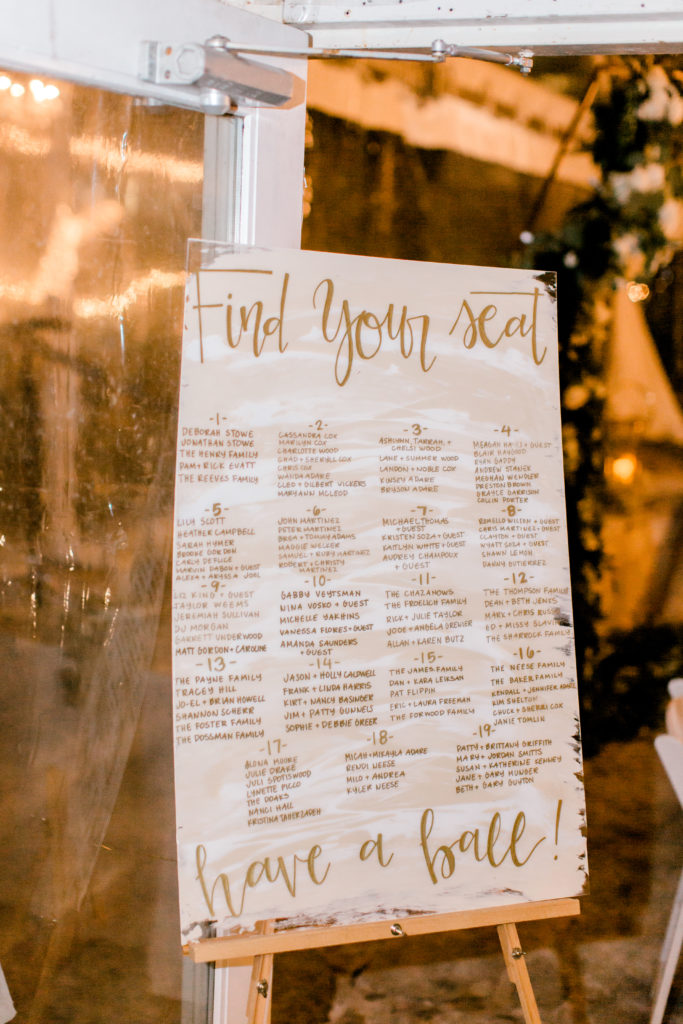 Find Your Seat
-1-
DEBORAH STOWE
JONATHAN STOWE
THE HENRY FAMILY
PAM + RICK EVATT
THE REEVES FAMILY
-2-
CASSANDRA COX
MARILYN COX
CHARLOTTE WOOD
CHAD + SHERYLL COX
CHRIS COX
WANDA ADARE
CLEO + GILBERT VICKERS
MARYANN MCLEOD
-3-
ASHLYNN, TARRAH, +
CHELSI WOOD
LANE + SUMMER WOOD
LANDON + NOBLE COX
KINSEY ADARE
BRYSON ADARE
-4-
MEAGAN + GUEST
BLAIR HAYGOOD
RYAN GADDY
ANDREW STANEK
MEGHAN WENDLER
PRESTON BROWN
GRAYCE GARRISON
COLLIN PORTER
-5-
LILY SCOTT
HEATHER CAMPBELL
SARAH HYMER
BROOKE GORDON
CARLY DEFLICE
MARVIN DABON + GUEST
ALEXA + ALYSSA
-6-
JOHN MARTINEZ
PETER MARTINEZ
BREA + TOMMY ADAMS
MAGGIE WELKER
SAMUEL + RUBY MARTINEZ
ROBERT + CHRISTY
MARTINEZ
-7-
MICHAEL THOMAS
+ GUEST
KRISTEN SOZA + GUEST
KAITLYN WHITE + GUEST
AUDREY CHAMPOUX
+ GUEST
-8-
ROMELLO WILSON + GUEST
CHRIS MARTINEZ + GUEST
CLAYTON + GUEST
WYATT SOZA + GUEST
SHAWN LEMON
DANNY GUTIERREZ
-9-
LIZ KING + GUEST
TAYLOR WEEMS
JEREMIAH SULLIVAN
DJ MORGAN
GARRETT UNDERWOOD
MATT GORDON + CAROLINE
-10-
GABBY VEYTSMAN
NINA VOSKO + GUEST
MICHELLE YAKHINS
VANESSA FLORES + GUEST
AMANDA SAUNDERS
+ GUEST
-11-
THE CHAZANOWS
THE FROELICH FAMILY
RICK + JULIE TAYLOR
JODE + ANGELA GREVIER
ALLAN + KAREN BUTZ
-12-
THE THOMPSON FAMILY
DEAN + BETH JENKS
MARK + CHRIS RUSS
ED + MISSY SLAVIN
THE SHARROCK FAMILY
-13-
THE PAYNE FAMILY
TRACEY HILL
JO-EL + BRIAN HOWELL
SHANNON SCHERR
THE FOSTER FAMILY
THE DOSSMAN FAMILY
-14-
JASON + HOLLY CALDWELL
FRANK + LINDA HARRIS
KIRT + NANCY BASINGER
JIM + PATTY GUNNELS
SOPHIE + DEBBIE GREER
-15-
THE JAMES FAMILY
DAN + KARA LEIKSAN
PAT FLIPPIN
ERIC + LAURA FREEMAN
THE FORWOOD FAMILY
-16-
THE NEESE FAMILY
THE BAKER FAMILY
KENDALL + JENNIFER ADARE
KIM SHELTON
CHUCK + SHERRI COX
JANIE TOMLIN
-17-
ALONA MOORE
JULIE DRAKE
JULI SPOTSWOOD
LYNETTE PICCO
THE DOAKS
NANCI HALL
KRISTINA TAHERZADEH
-18-
MICAH + MIKAYLA ADARE
RENDI NEESE
MILO + ANDREA
KYLER NEESE
-19-
PATTY + BRITTANY GRIFFITH
MARY + JORDAN SMITTS
SUSAN + KATHERINE KENNEY
JANE + GARY MUNGER
BETH + GARY GUYTON
have a ball!